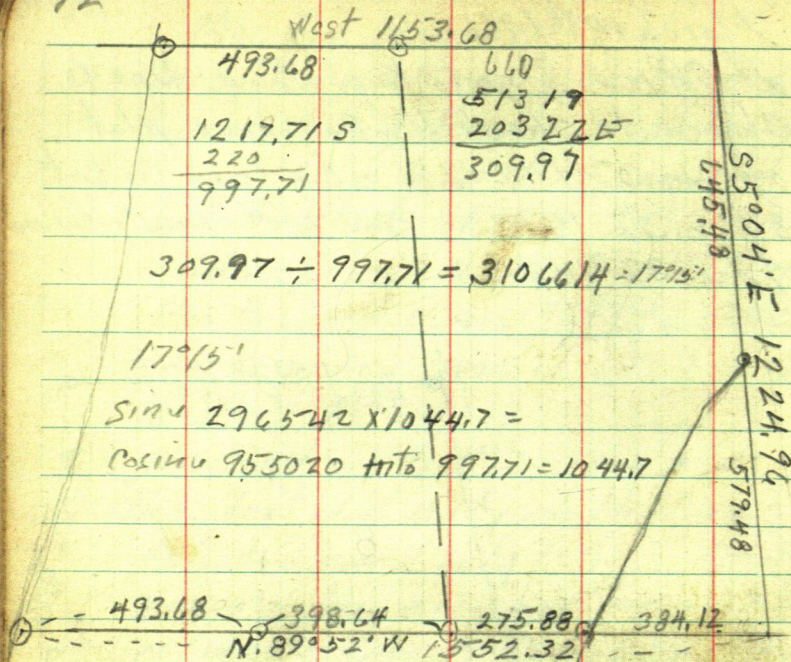 West 1153.68
493.68
660
513 19
1217.71 S
203 22 E
220
309.97
997.71
309.97 ÷ 997.71 = 3106614 = 17°15'
17°15'
Sine 296542 X 1044.7 =
Cosine 955020 into 997.71 = 1044.7
S5°04'E 1224.96
645.48
579.48
493.68 398.64 275.88 384.12
N. 89°52' W 1552.32